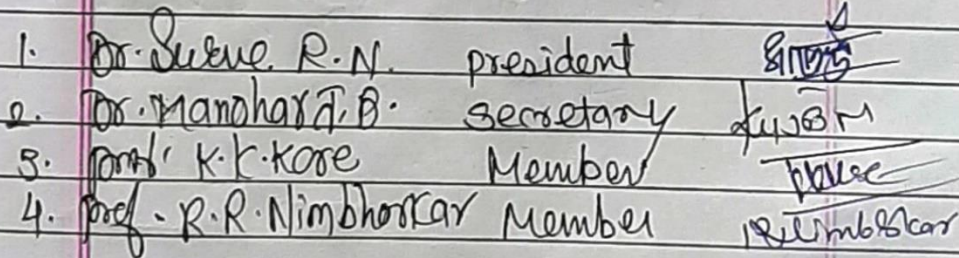 1. Dr. Surve R.N. president
2. Dr. Manohar J.B. secretary
3. Prof. K.K. Kore Member
4. Prof. R.R. Nimbhorkar Member